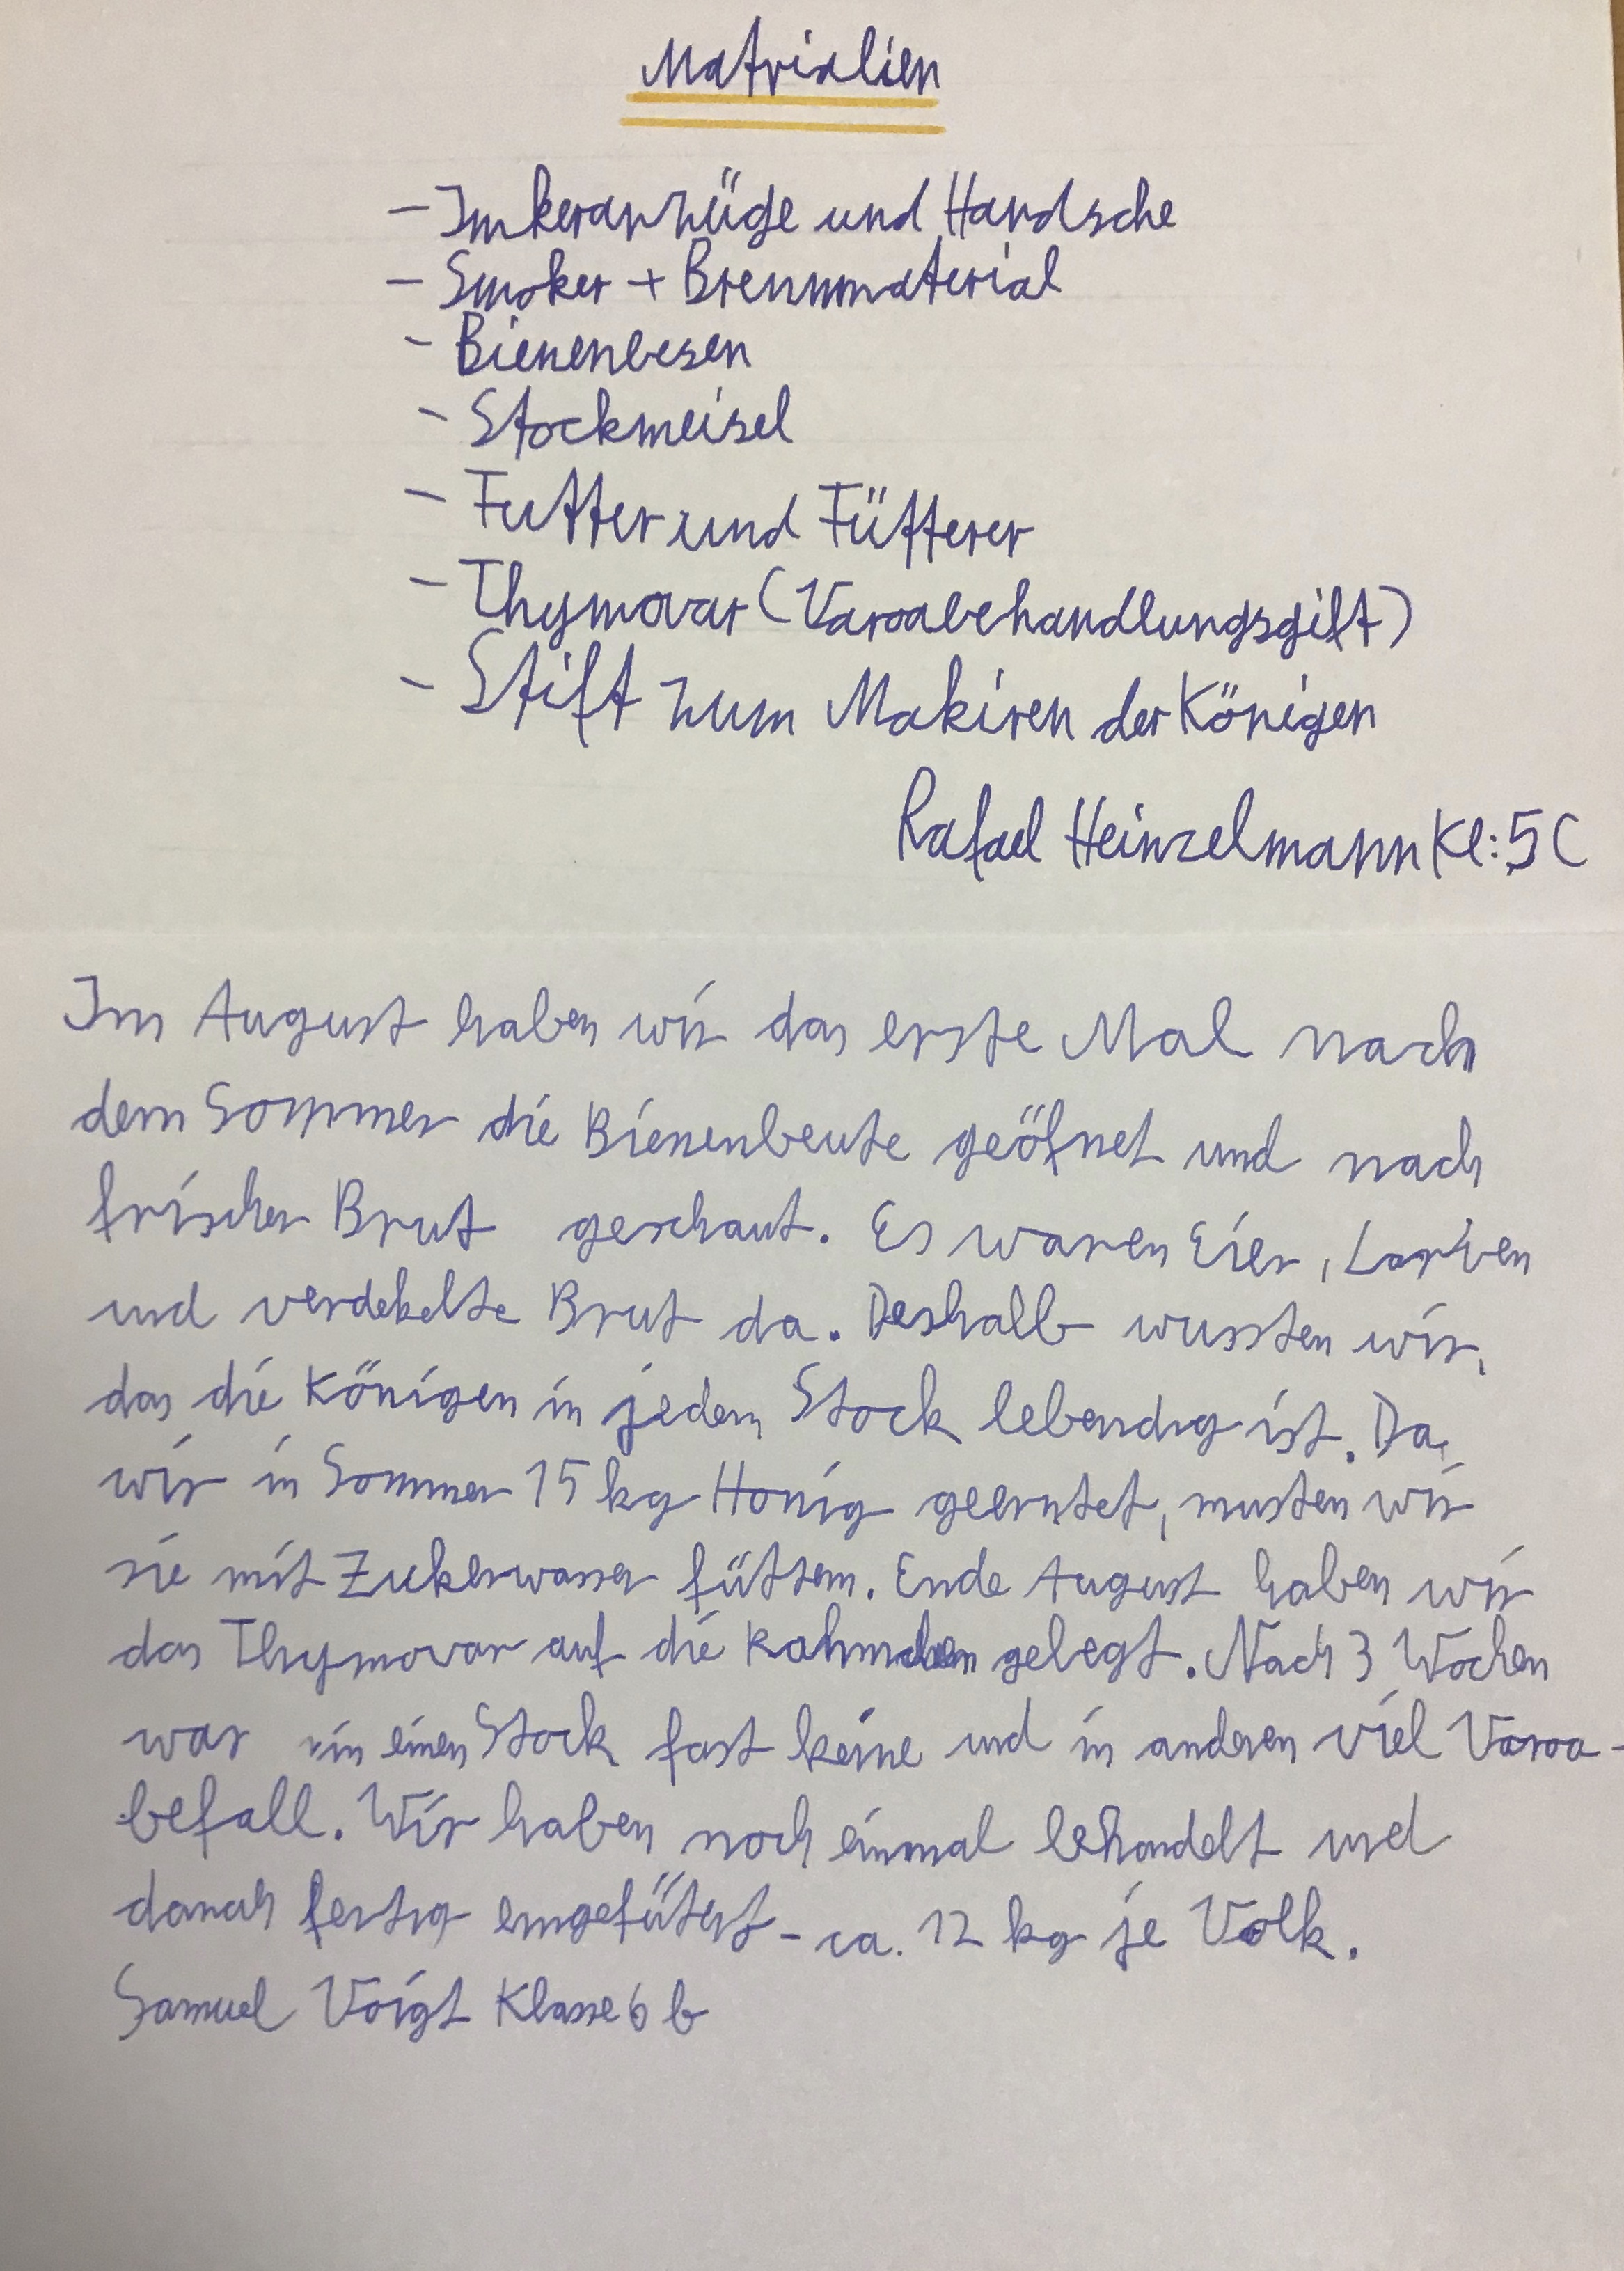 Matrialien
- Imkeranzüge und Handsche
- Smoker + Brennmaterial
- Bienenbesen
- Stockmeisel
- Futter und Fütterer
- Thymovar (Varoabehandlungsgift)
- Stift zum Makiren der Königen
Rafael Heinzelmann Kl: 5C
Im August haben wir das erste Mal nach
dem Sommer die Bienenbeute geöfnet und nach
frischer Brut geschaut. Es waren Eier, Larven
und verdekelte Brut da. Deshalb wussten wir,
das die Königen in jedem Stock lebendig ist. Da
wir in Sommer 15 kg Honig geerntet, musten wir
sie mit Zukerwasser füttern. Ende August haben wir
das Thymovar auf die Rahmchen gelegt. Nach 3 Wochen
war in einen Stock fast keine und in anderen viel Varoa-
befall. Wir haben noch einmal behandelt und
danach fertig eingefütert - ca. 12 kg je Volk.
Samuel Voigt Klasse 6 b